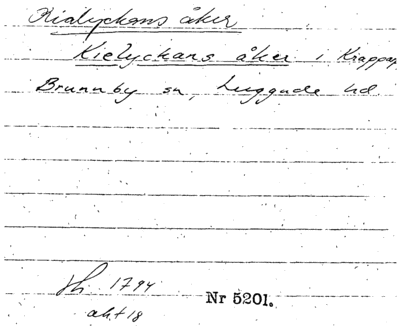 Kialyckans åker
Kielyckans åker i Krappap
Brunnby sn, Luggude hd
1794
akt 18
Nr 5201.